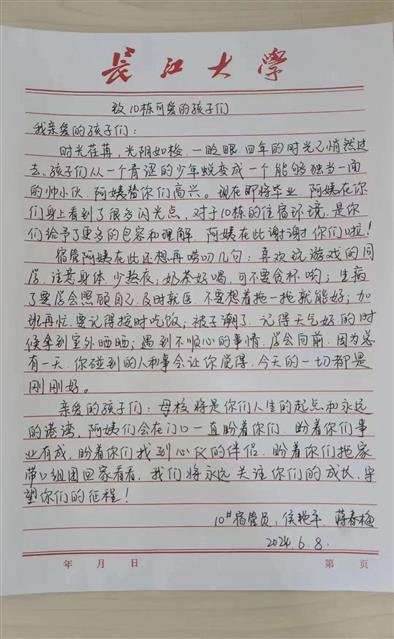 长江大学
致10栋可爱的孩子们
我亲爱的孩子们：
时光荏苒，光阴如梭，一眨眼，四年的时光已悄然过
去，孩子们从一个青涩的少年蜕变成一个能够独当一面
的帅小伙，阿姨替你们高兴。现在即将毕业，阿姨在你
们身上看到了很多闪光点，对于10栋的住宿环境，是你
们给予了更多的包容和理解，阿姨在此谢谢你们啦！
宿管阿姨在此还想再唠叨几句：喜欢玩游戏的同
学，注意身体，少熬夜；奶茶好喝，可不要贪杯哟；生病
了要学会照顾自己，及时就医，不要想着拖一拖就能好；加
班再忙，要记得按时吃饭；被子潮了，记得天气好的时
候拿到室外晒晒；遇到不顺心的事情，学会向前，因为总
有一天，你碰到的人和事会让你觉得，今天的一切都是
刚刚好。
亲爱的孩子们：母校将是你们人生的起点和永远
的港湾，阿姨们会在门口一直盼着你们，盼着你们事
业有成，盼着你们找到心仪的伴侣，盼着你们拖家
带口组团回家看看，我们将永远关注你们的成长，守
望你们的征程！
10#宿管员：侯艳平 蒋春梅
2024.6.8.
年 月 日 第 页